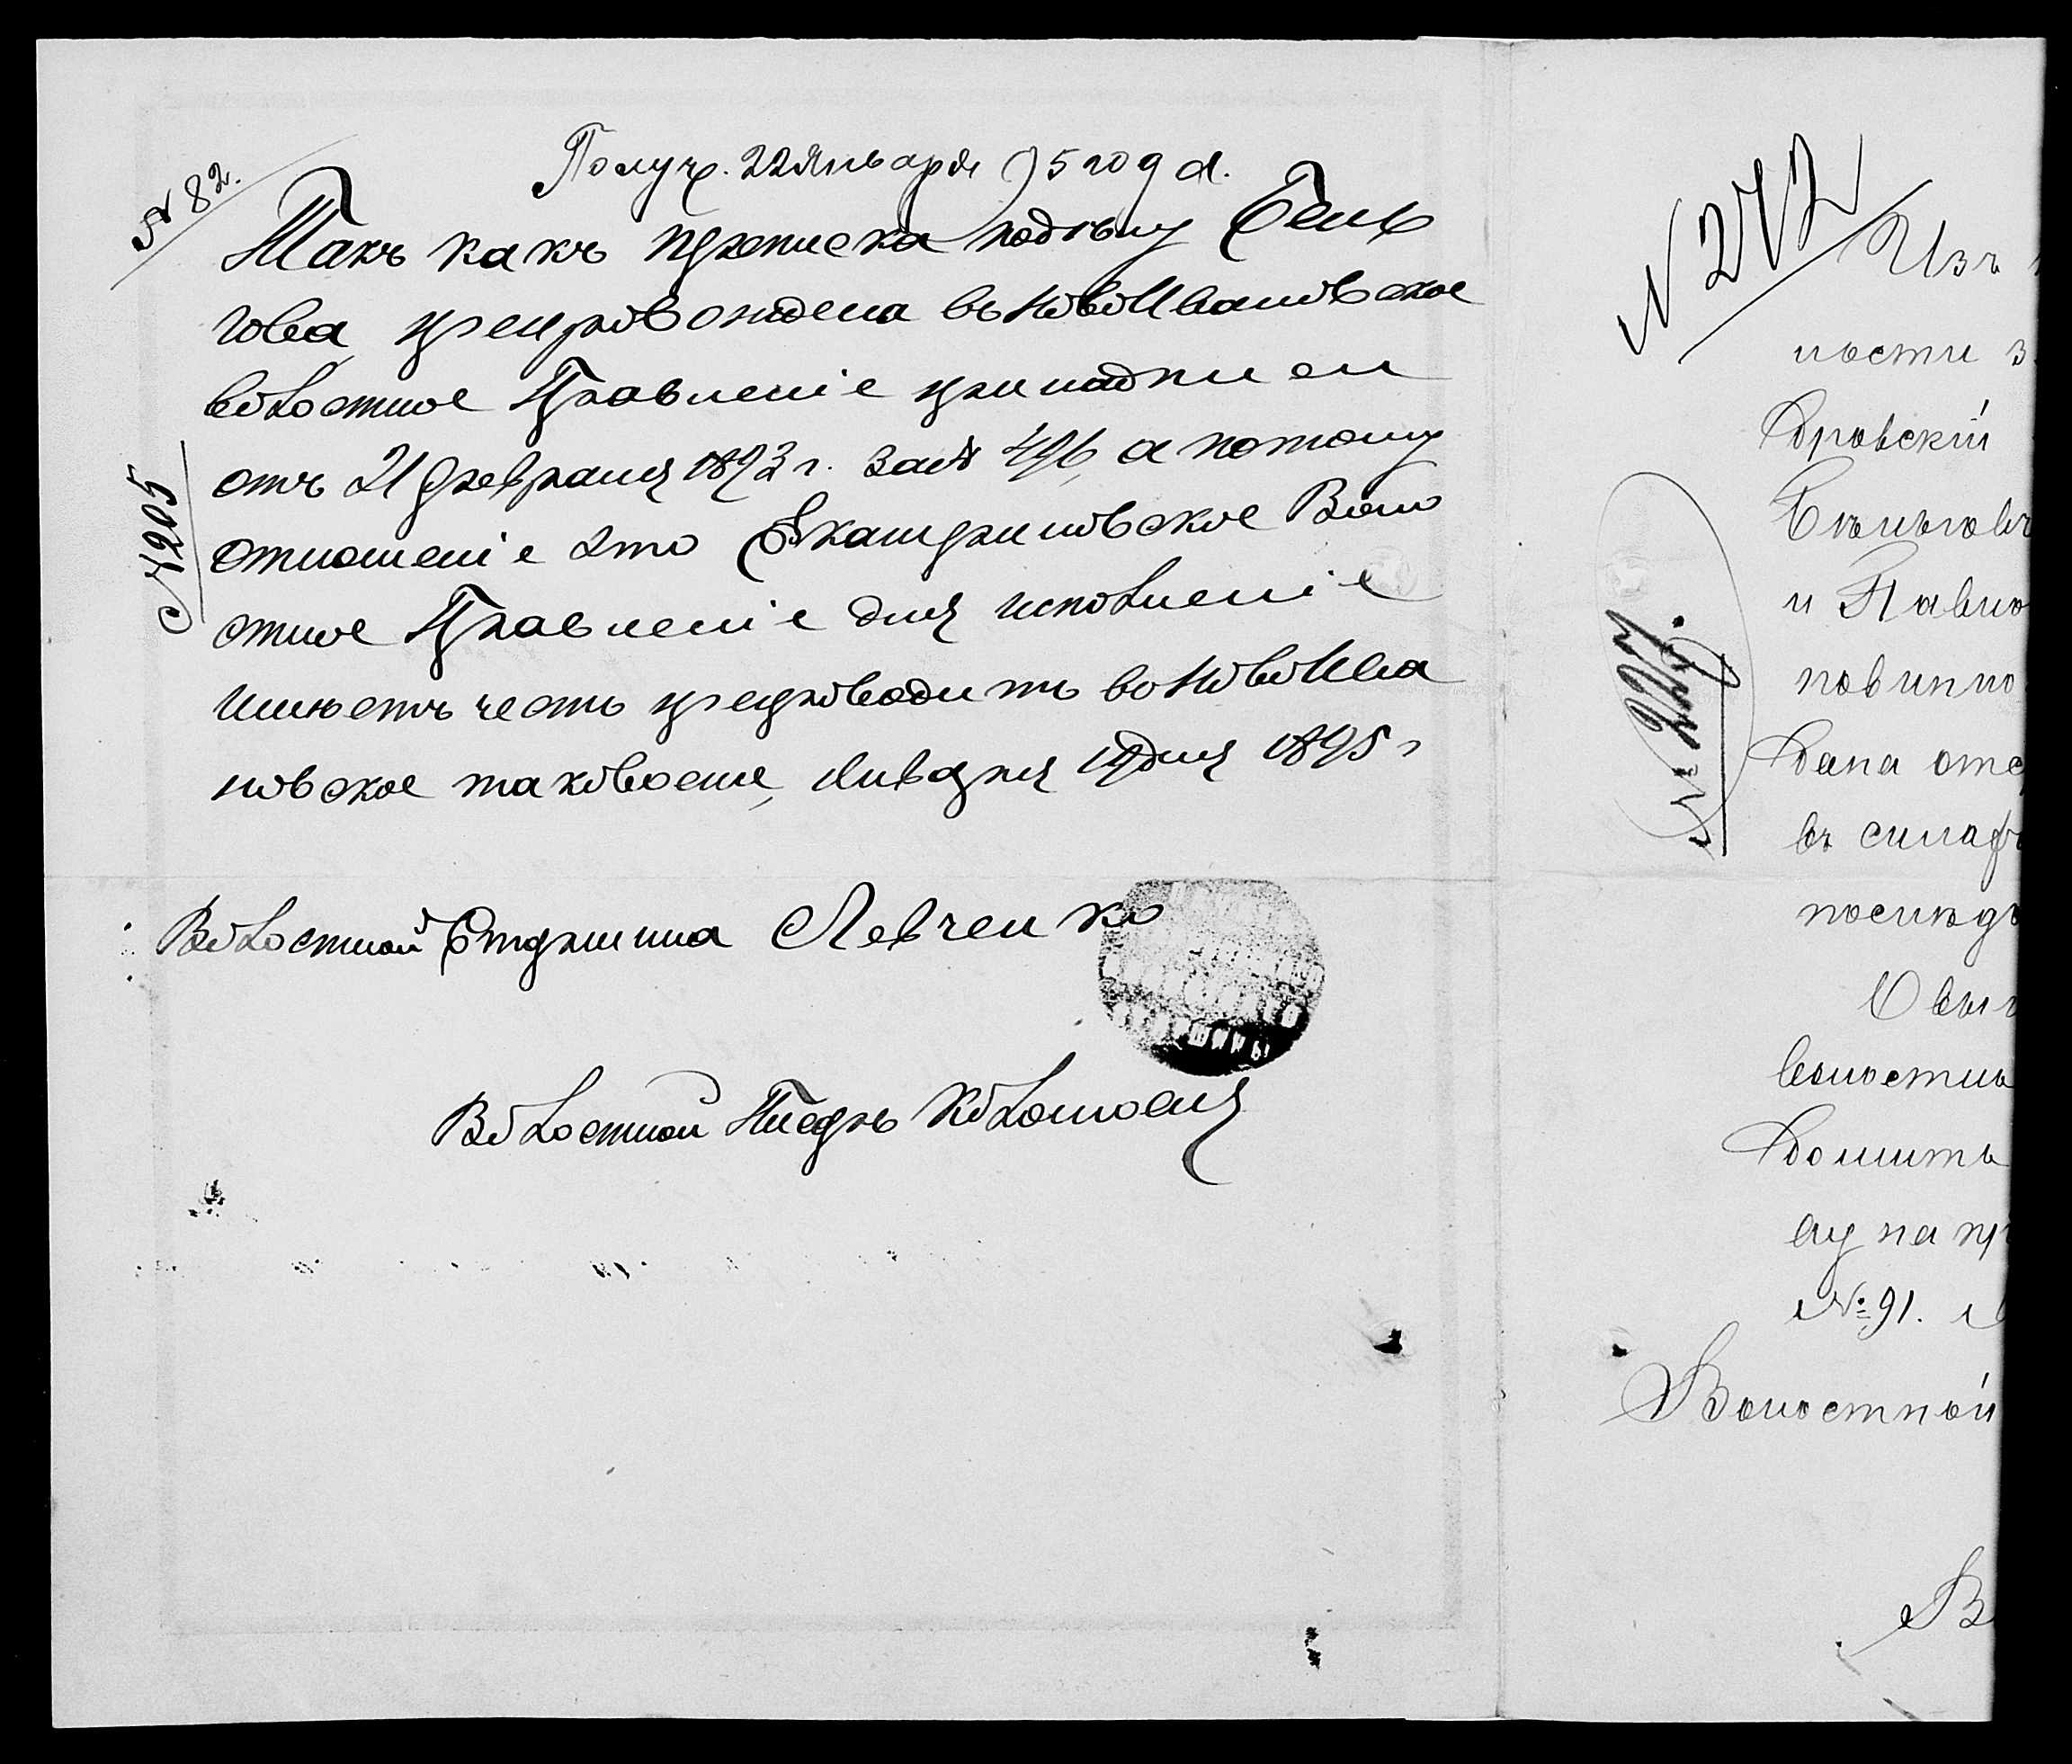 Получ. 22 Января 95 года.
№ 82.
Такъ какъ преписка подѣлу Бель
гова препровождена въ НовоИвановское
волостное Правленіе принадписи
отъ 21 февраля 1893 г. за № 496, а потому
отношеніе это Екатериновское Воло
стное Правленіе для исполненія
имѣетъ честь препроводить во НовоИва
новское таковоеже, Января 19 дня 1895 г
№ 205
Волостной Старшина Левченко
ШИНЫ
Волостной Писарь
№ 272
Изъ
ности з
и Павло
повинно
Дана отс
въ
послѣд
волостно
ву на пр
№ 91.
Волостной
В
№ 227.